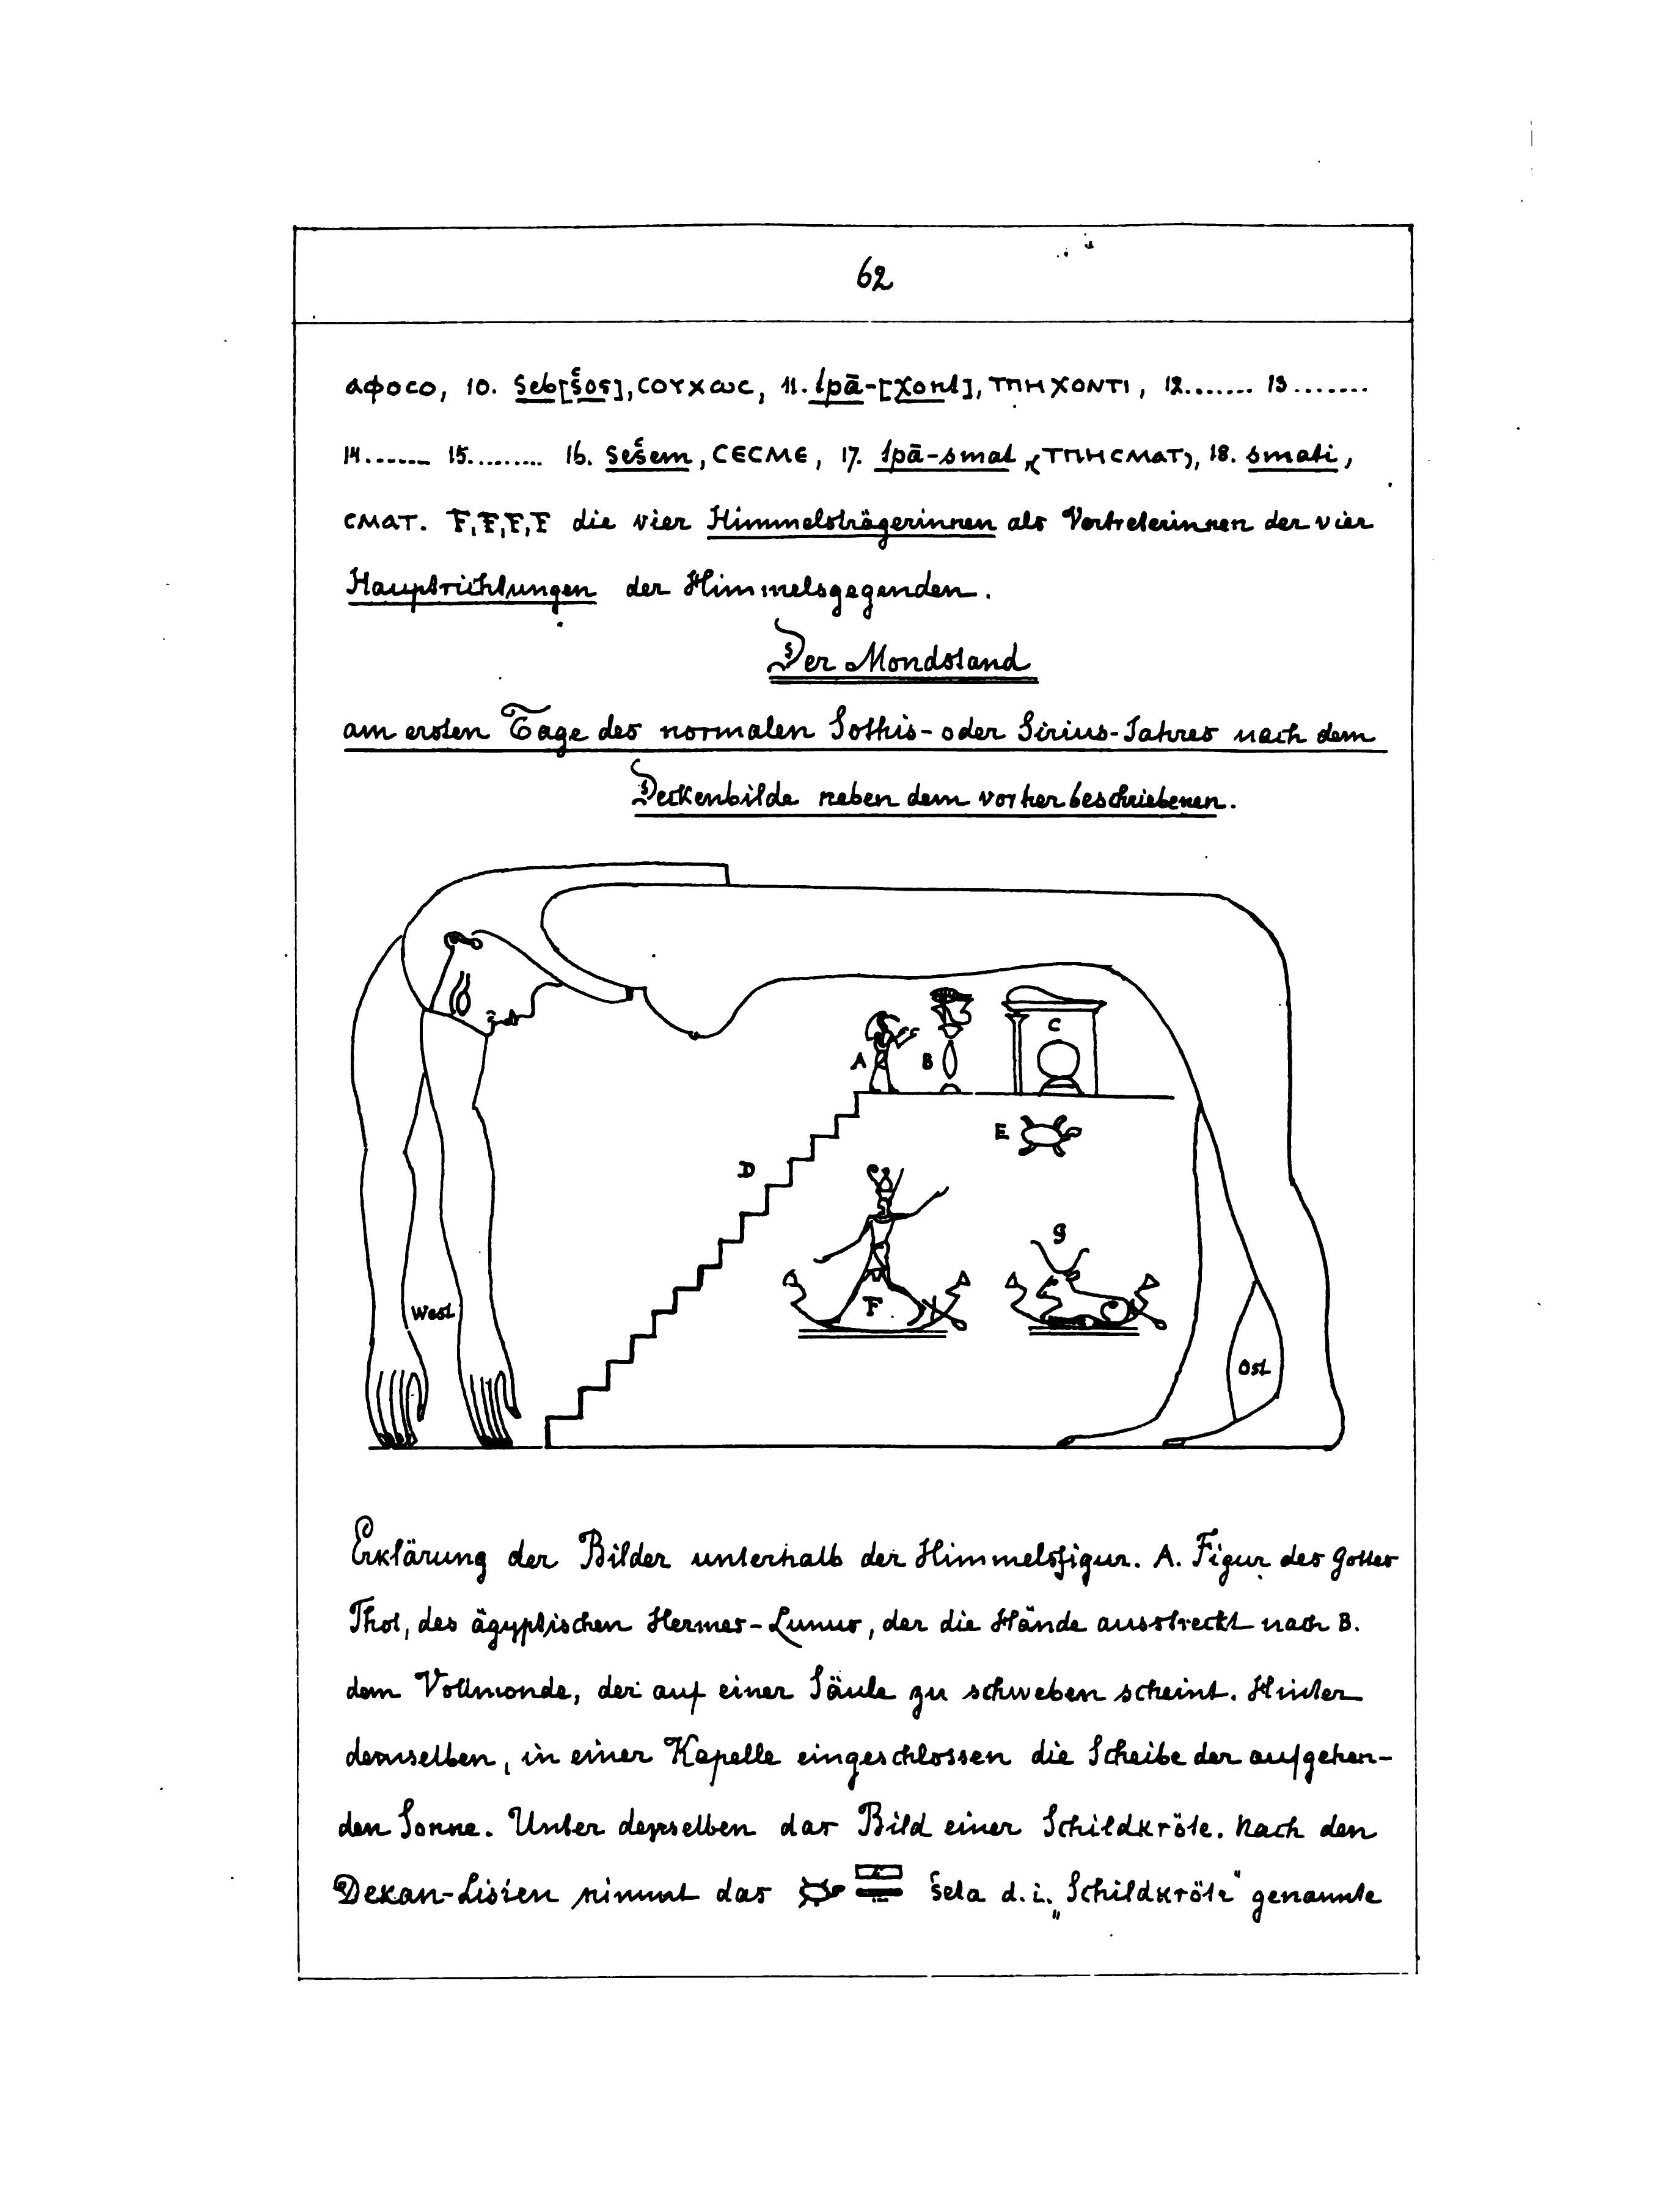 62
ⲁⲫⲟⲥⲟ, 10. seb[šos], ⲥⲟⲩⲭⲱⲥ, 11. tpā-[χont], ⲧⲡⲏⲭⲟⲛⲧⲓ, 12....... 13........
14....... 15......... 16. sešem, ⲥⲉⲥⲙⲉ, 17. tpā-smat, (ⲧⲡⲏⲥⲙⲁⲧ), 18. smati,
ⲥⲙⲁⲧ. F,F,F,F die vier Himmelsträgerinnen als Vertreterinnen der vier
Hauptrichtungen der Himmelsgegenden.
Der Mondstand
am ersten Tage des normalen Sothis- oder Sirius-Jahres nach dem
Deckenbilde neben dem vorher beschriebenen.
A B C
E
D
F
g
West
Ost
Erklärung der Bilder unterhalb der Himmelsfigur. A. Figur des Gottes
Thot, des ägyptischen Hermes-Lunus, der die Hände ausstreckt nach B.
dem Vollmonde, der auf einer Säule zu schweben scheint. Hinter
demselben, in einer Kapelle eingeschlossen die Scheibe der aufgehen-
den Sonne. Unter derselben das Bild einer Schildkröte. Nach den
Dekan-Listen nimmt das šeta d. i. „Schildkröte" genannte